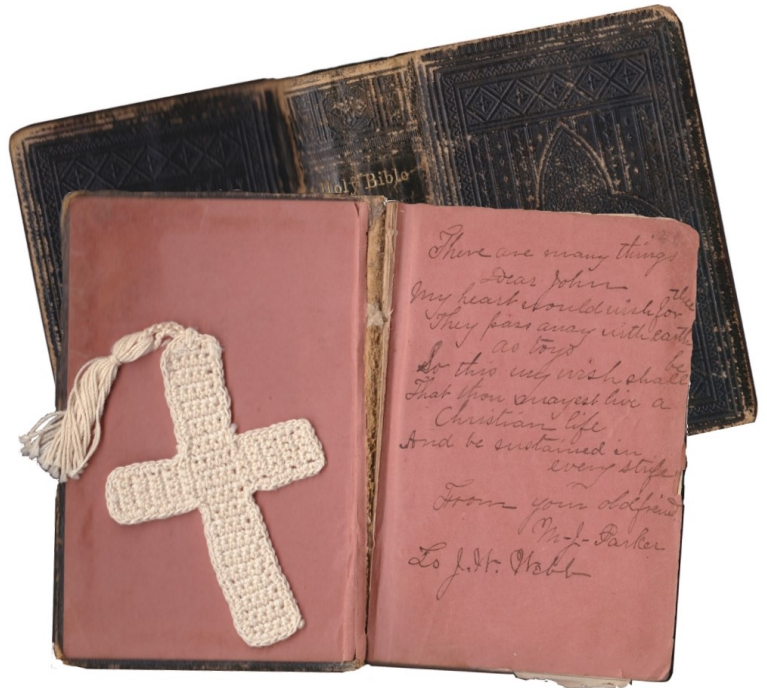 Holy Bible
There are many things
Dear John
My heart would wish for thee
They pass away with earth
as toys
So this my wish shall be
That thou mayest live a
Christian life
And be sustained in
every strife
From your old friend
M-J- Parker
To J.W. Webb